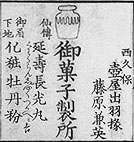 西久保
壺屋出羽掾
藤原兼英
御菓子製所
仙傳
延壽長光丸
御眉下地
化粧牡丹粉